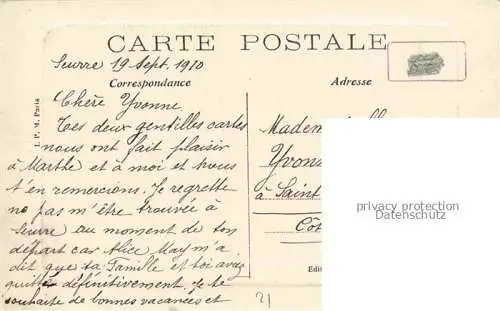 CARTE POSTALE
Seurre 19 Sept. 1910
Correspondance
Adresse
Chère Yvonne
Tes deux gentilles cartes
nous ont fait plaisir
à Marthe et à moi et nous
t'en remercions. Je regrette
ne pas m'être trouvée à
Seurre au moment de ton
départ car Alice May m'a
dit que ta Famille et toi aviez
quitté définitivement. Je te
souhaite de bonnes vacances et
Yvon
à Saint
Côt
Edit
I. P. M. Paris
21
privacy protection
Datenschutz